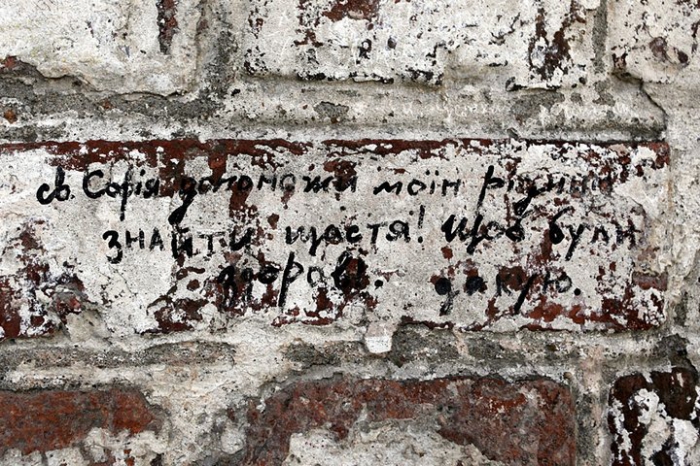 св. Софія допоможи моїм рідним
знайти щастя! Щоб були
здорові. дякую.